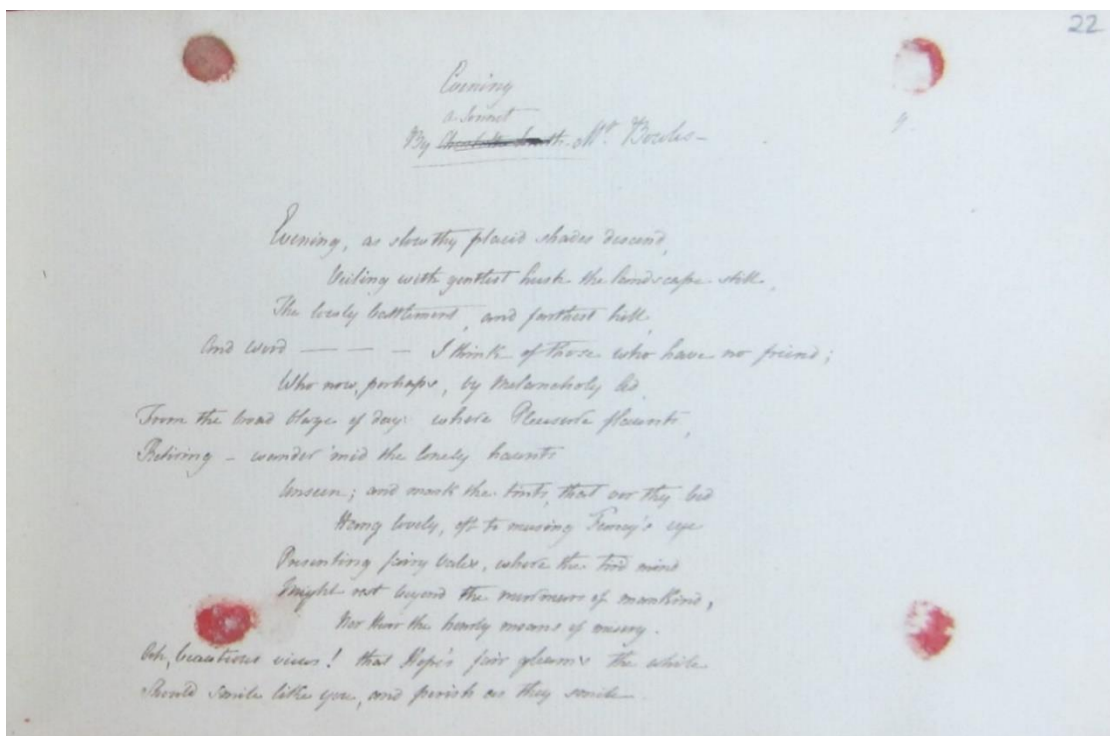 22
Evening
a Sonnet
By Charlotte Smith. Mr. Bowles—
Evening, as slow thy placid shades descend,
Veiling with gentlest hush the landscape still,
The lonely battlement, and farthest hill
And wood — — — I think of those who have no friend;
Who now, perhaps, by Melancholy led
From the broad blaze of day where Pleasure flaunts,
Retiring - wander 'mid the lonely haunts
Unseen; and mark the tints, that oer thy bed
Hang lovely, oft to musing Fancy's eye
Presenting fairy vales, where the tir'd mind
Might rest beyond the murmurs of mankind,
Nor hear the hourly moans of misery.
Ah, beauteous views! that Hope's fair gleams the while
Should smile like you, and perish as they smile.